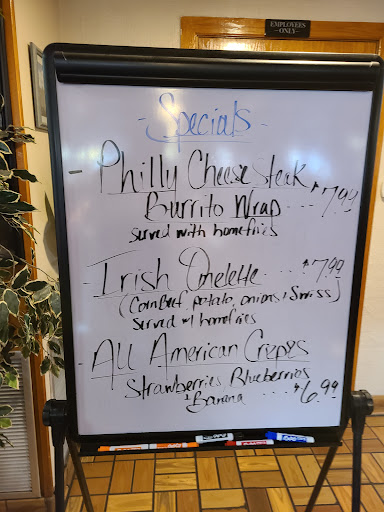 EMPLOYEES
-ONLY-
- Specials -
- Philly Cheese Steak
Burrito Wrap ---- $7.99
Served with homefries
- Irish Omelette .... $7.99
(Corn Beef, potato, onions, & Swiss)
Served w/ homefries
- All American Crepes
Strawberries, Blueberries
& Banana .... $6.99
EXPO